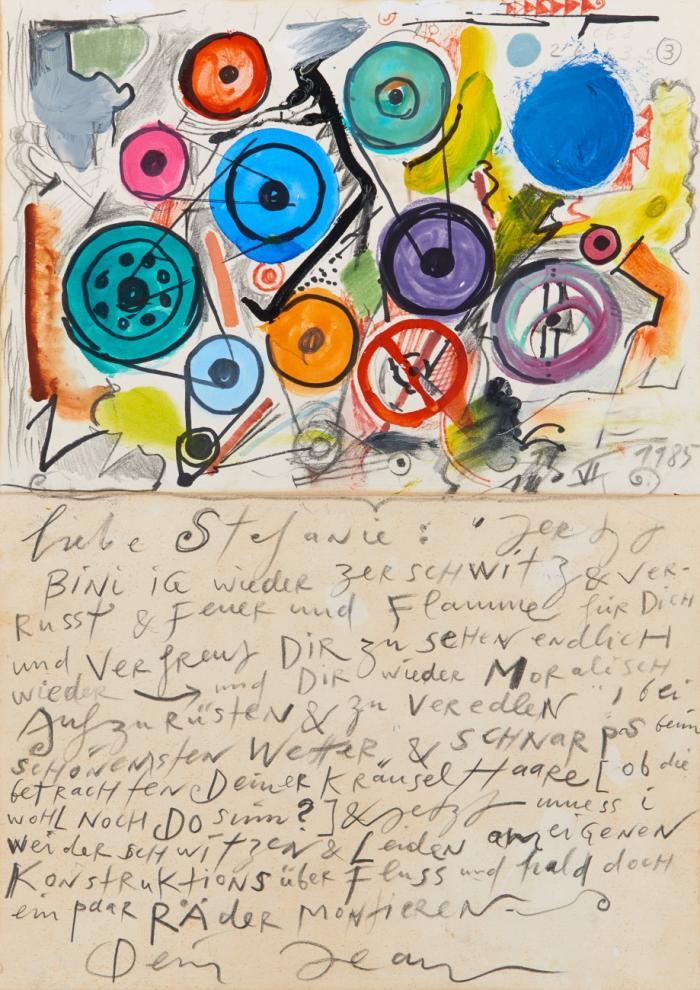 3
VI 1985
liebe Stefanie: "Jetzt
Bini ig wieder zerschwitz & ver-
russt & Feuer und Flamme für Dich
und verfreut Dir zu sehen endlich
wieder → und Dir wieder Moralisch
Aufzurüsten & zu veredlen", bei
schönensten Wetter & schnarpas beim
betrachten Deiner KräuselHaare [ob die
wohl noch Do sinn?] & jetzt muess i
weider schwitzen & Leiden an eigenen
Konstruktions über Fluss und hald doch
ein paar Räder montieren
Dein Jean